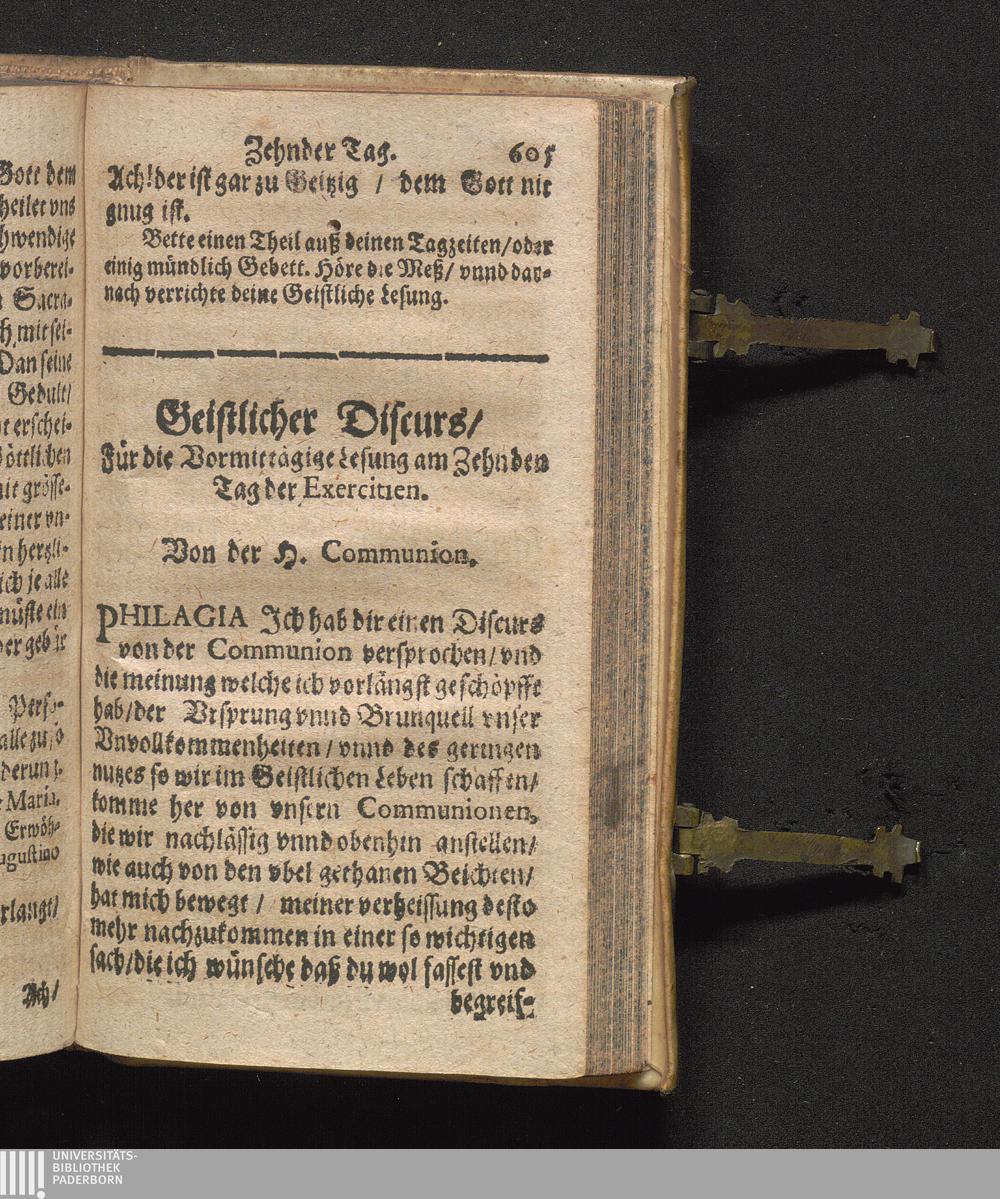 Gott dem
heilet vns
hwendige
vorberei-
Sacra-
mit sei-
Dan seine
Gedult/
erschei-
öttlichen
grösse-
einer vn-
hertzli-
ich je alle
müste ein
Perso-
derung
Maria.
Erwöh-
ugustino
rlangt/
Ach/
Zehnder Tag. 605
Ach! der ist gar zu Geitzig / dem Gott nit
gnug ist.
Bette einen Theil auß deinen Tagzeiten/oder
einig mündlich Gebett. Höre die Meß/ vnnd dar-
nach verrichte deine Geistliche Lesung.
Geistlicher Discurs/
Für die Vormittägige Lesung am Zehnden
Tag der Exercitien.
Von der H. Communion.
PHILAGIA Ich hab dir einen Discurs
von der Communion versprochen/vnd
die meinung welche ich vorlängst geschöpfft
hab/der Vrsprung vnnd Brunquell vnser
Vnvollkommenheiten/vnnd des geringen
nutzes so wir im Geistlichen Leben schaffen/
komme her von vnsern Communionen,
die wir nachlässig vnnd obenhin anstellen/
wie auch von den vbel gethanen Beichten/
hat mich bewegt / meiner verheissung desto
mehr nachzukommen in einer so wichtigen
sach/die ich wünsche daß du wol fassest vnd
begreif-
UNIVERSITÄTS-
BIBLIOTHEK
PADERBORN